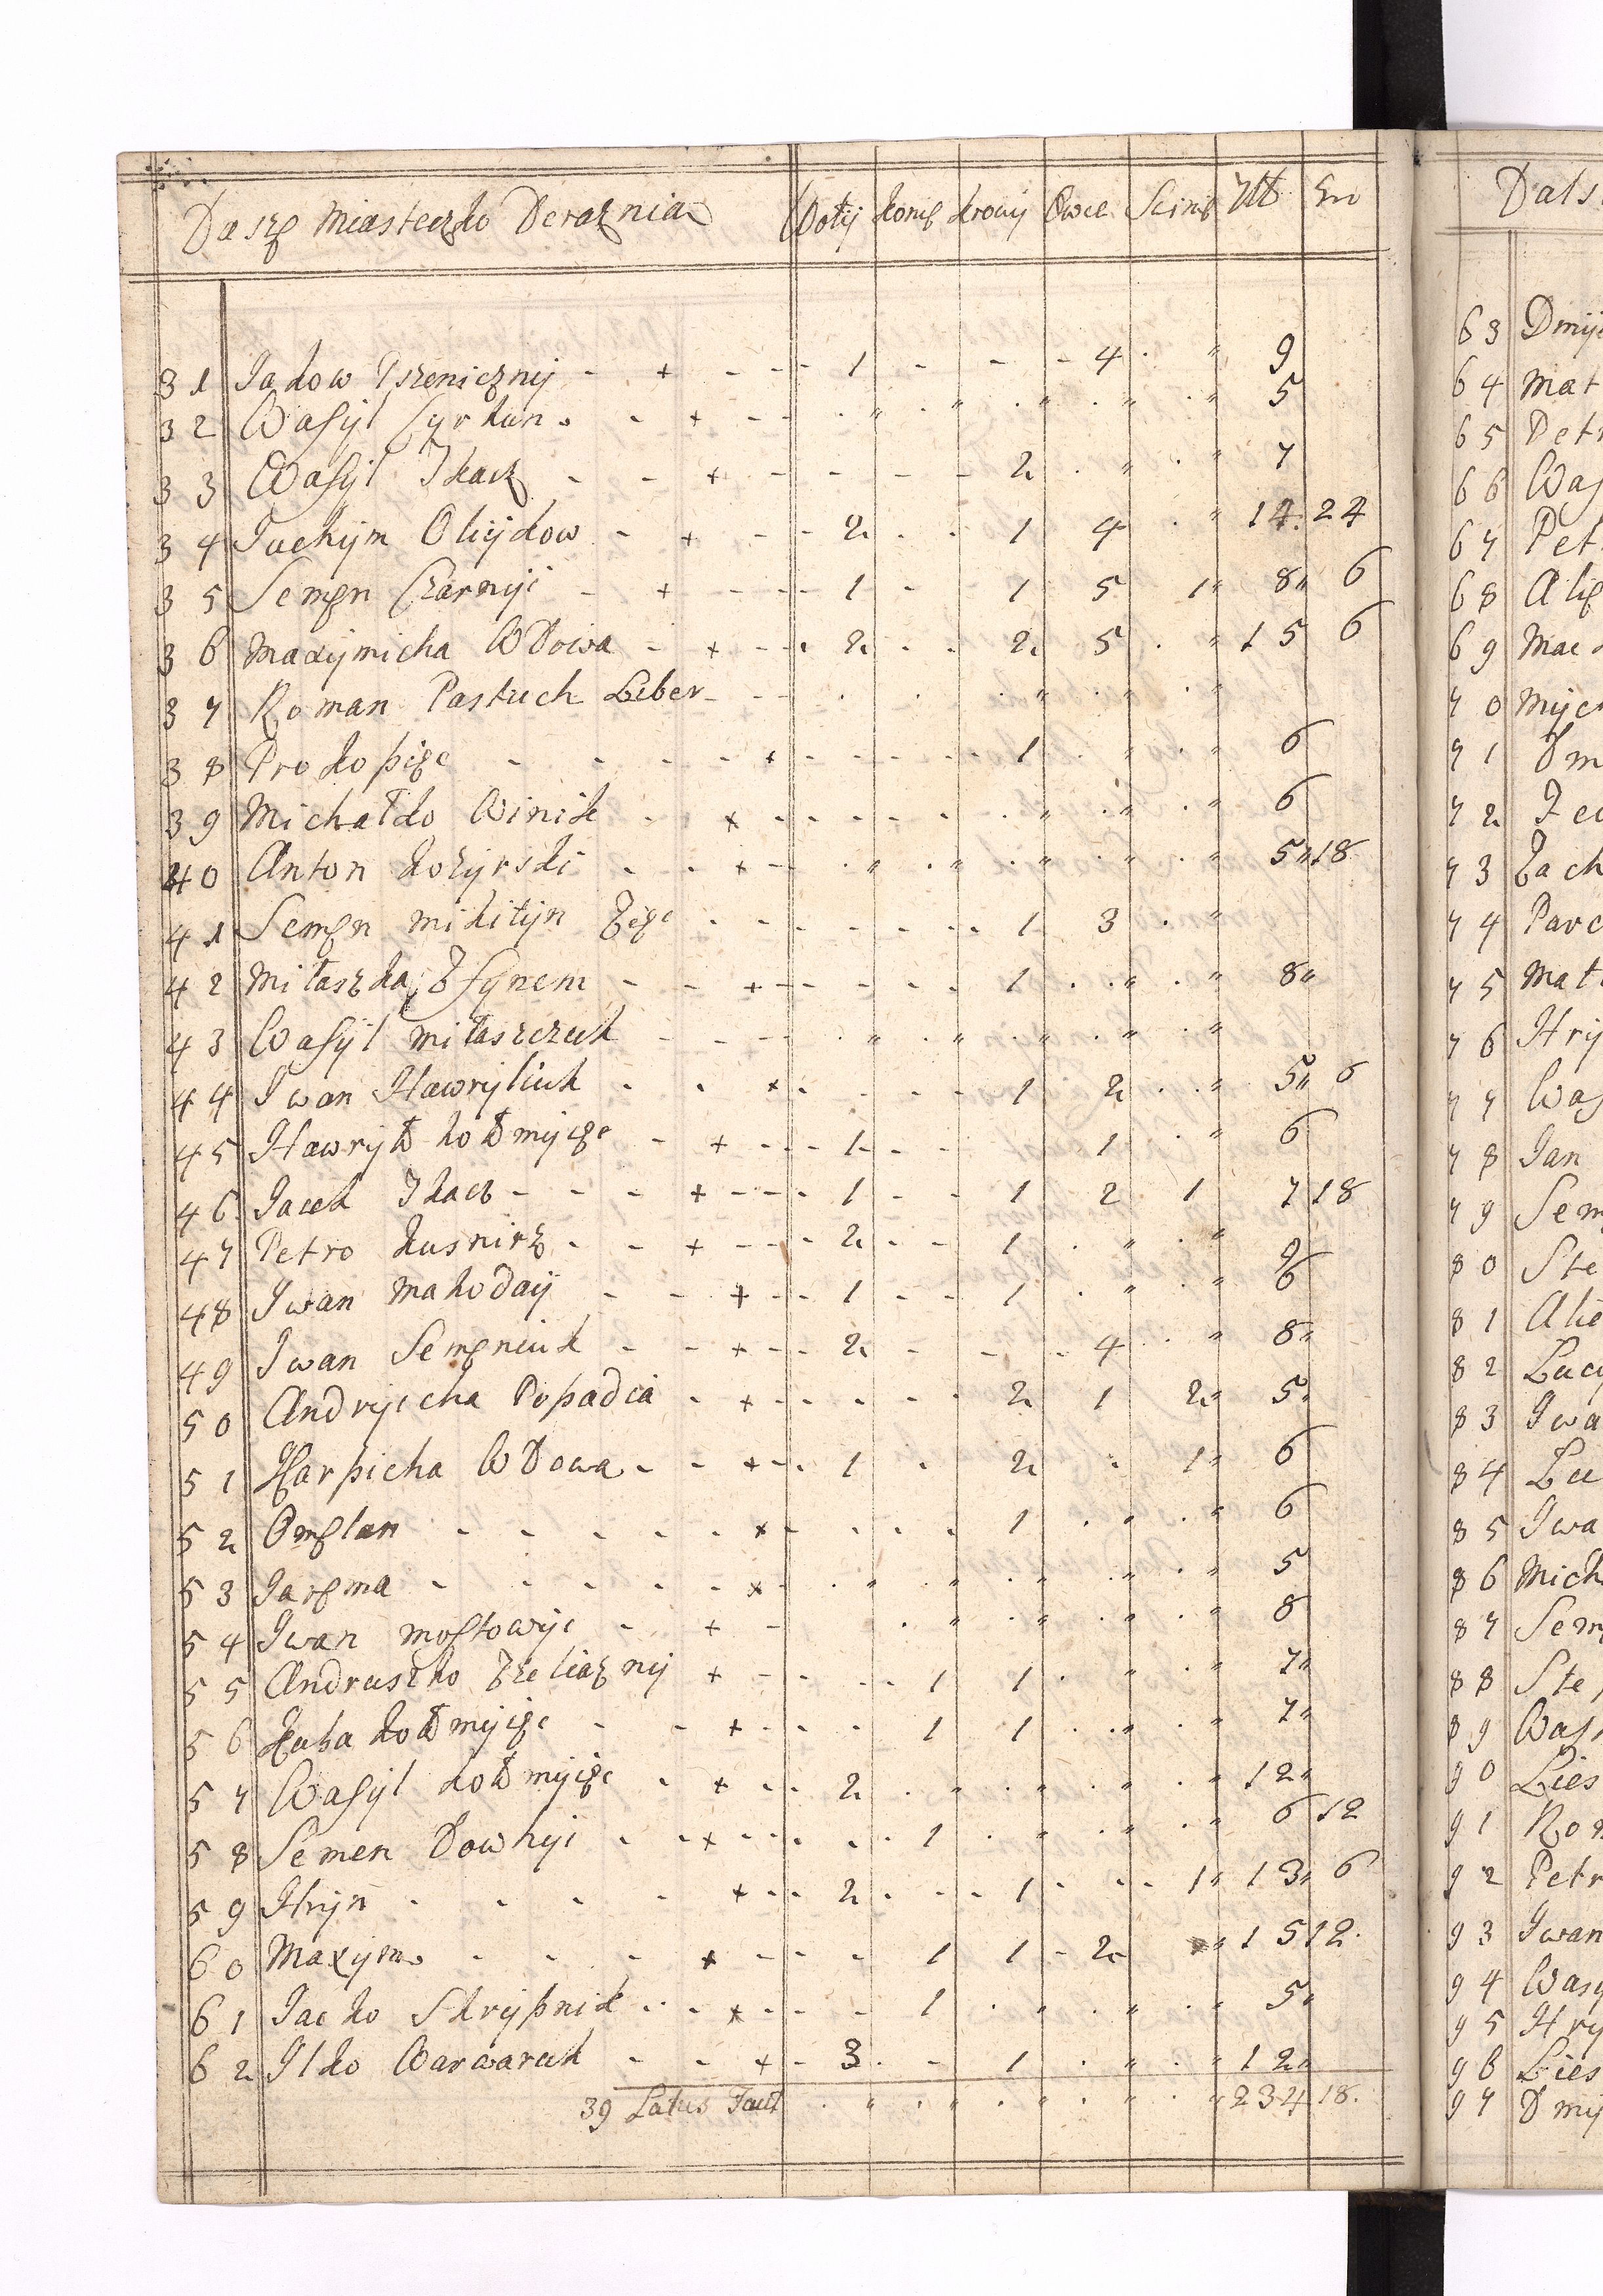 Dalsze Miasteczko Deraznia Woły konie krowy Owce Swinie Złł Gro
31 Jakow Pszenicznij - + - - - 1 - - - 4 . " 9
32 Wasyl Cyrkun . - + - - . " . " . " . " . " 5
33 Wasyl Tkacz - - + - - - - 2 . " . " 7
34 Juchym Olijkow - + - - 2 . . 1 4 . " 14. 24
35 Semen Czarnyi - + - - - 1 - 1 5 1" 8" 6
36 Maxymicha Wdowa - + - - . 2 . . 2 5 . " 15 6
37 Roman Pastuch Liber - - - . . . " . " . "
38 Prokopize - - - - - + - - - - - - 1 . " . " 6
39 Michałko Winnik - . x - - - - - . " . " . " 6
40 Anton Kozyrski . . + - - . " . " . " . " . " 5" 18
41 Semen Mikityn Zięc . - - - - - - - . 1 3 . "
42 Miłaszka z Synem - - + - - - - . 1 . " . " 8"
43 Wasyl Miłaszczuk - - - - - . " . " . " . " . "
44 Iwan Hawryliuk . . x . . - . - 1 2 . " 5" 6
45 Hawryło - + - - - 1 - . - 1 . " 6
46 Jacek Tkacz - - - + - - - . 1 - - 1 2 1 7 18
47 Petro Kusnirz . - - + - - - . 2 . - 1 . " . "
48 Iwan Mahoday - - + - - . 1 - - 1 . " . " 9 6
49 Iwan Semeniuk - - + - - . 2 - - - 4 . " 8"
50 Andryicha Popadia - + - . - - - 2 1 2" 5"
51 Karpicha Wdowa - - + - . 1 . 2 . 1" 6
52 Omelan - - - - - x - . . - 1 . " . " 6
53 Jarema - - - - - x - . " . " . " . " . " 5
54 Iwan Mostowyi - + - . " . " . " . " 8
55 Andruszko Zeliaznij + - - . - 1 1 . " . " 7"
56 - - + - . - 1 1 . " . " 7"
57 Wasyl . + . . 2 . " . " . " . " 12"
58 Semen Dowhyi - - + - . - . - 1 . " . " . " 6 12
59 Hryn - - - - + - . 2 . - - 1 - - - 1" 13" 6
60 Maxym . - - - + - - - 1 1 - 2 " 15 12.
61 Jacko Skrypnik . . - + - - - 1 . " . " . " 5"
62 Ilko Warwaruk - - + - 3 . - 1 . " . " 12"
39 Latus Facit . " . " . " . " . " 234 18.
Dals
63
64 Mat
65 Petr
66 Was
67 Pet
68
69
70 Myc
71
72
73 Zach
74
75 Mat
76 Hry
77 Was
78 Jan
79 Sem
80 Ste
81
82
83 Iwa
84
85 Iwa
86 Mich
87 Sem
88 Ste
89 Was
90 Lies
91 Rom
92 Petr
93 Iwan
94 Wasy
95 Hry
96 Lies
97 Dmy